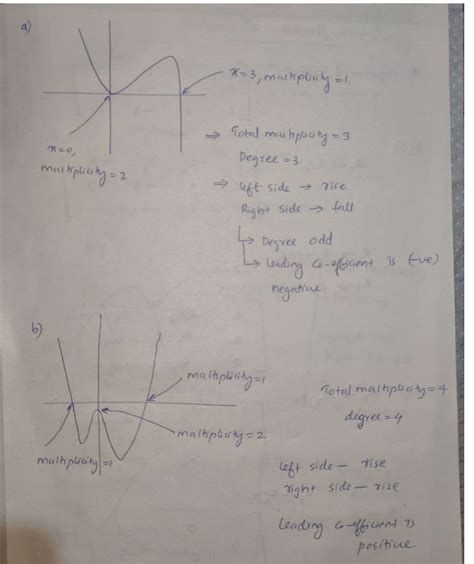 a)
x=3, multiplicity=1.
x=0,
multiplicity=2
⇒ Total multiplicity=3
Degree=3.
⇒ left side → rise
Right side → fall
↳ Degree odd
↳ leading co-efficient is (-ve)
negative.
b)
multiplicity=1
multiplicity=2
multiplicity=1
Total multiplicity=4
degree=4
left side — rise
right side — rise
leading co-efficient is
positive.